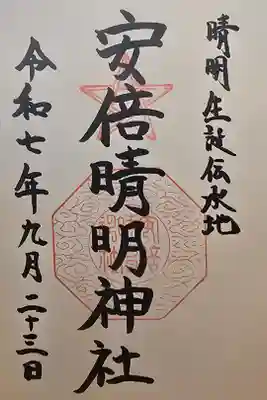 晴明生誕伝承地
安倍晴明神社
令和七年九月二十三日